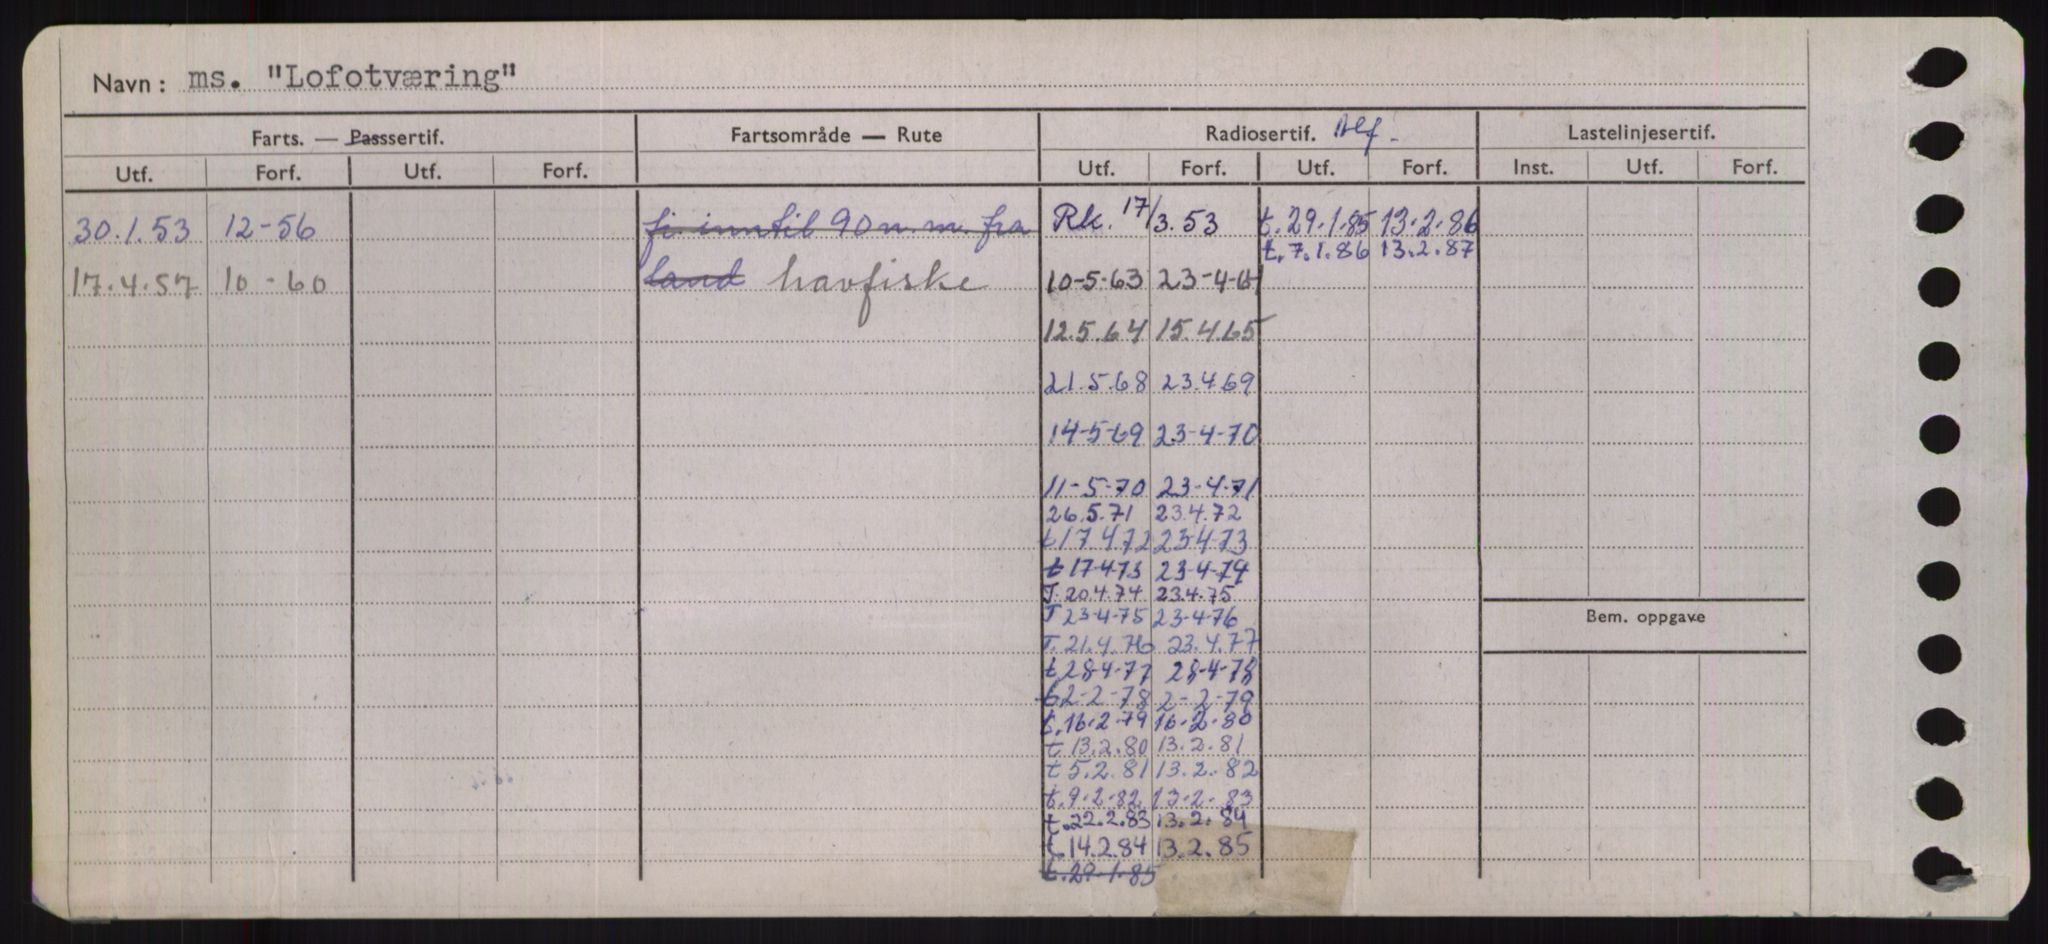 Navn: ms. "Lofotværing"
Farts. — Passsertif. Fartsområde — Rute Radiosertif. Lastelinjesertif.
Utf. Forf. Utf. Forf. Utf. Forf. Utf. Forf. Inst. Utf. Forf.
30.1.53 12-56 fi inntil 90 n.m. fra Rk. 17/3.53 t. 29.1.85 13.2.86
t. 7.1.86 13.2.87
17.4.57 10-60 land havfiske 10-5-63 23-4-64
12.5.64 15.4.65
21.5.68 23.4.69
14-5-69 23-4-70
11-5-70 23-4-71
26.5.71 23.4.72
t 17.4.72 23-4-73
t 17-4-73 23-4-74
T. 20.4.74 23.4.75
T 23-4-75 23-4-76
T. 21.4.76 23.4.77
t 28-4-77 28-4-78
t 2-2-78 2-2-79
t. 16.2.79 16.2.80
t. 13.2.80 13.2.81
t 5.2.81 13.2.82
t. 9.2.82 13.2.83
t. 22.2.83 13.2.84
t. 14.2.84 13.2.85
t. 29.1.85
Bem. oppgave